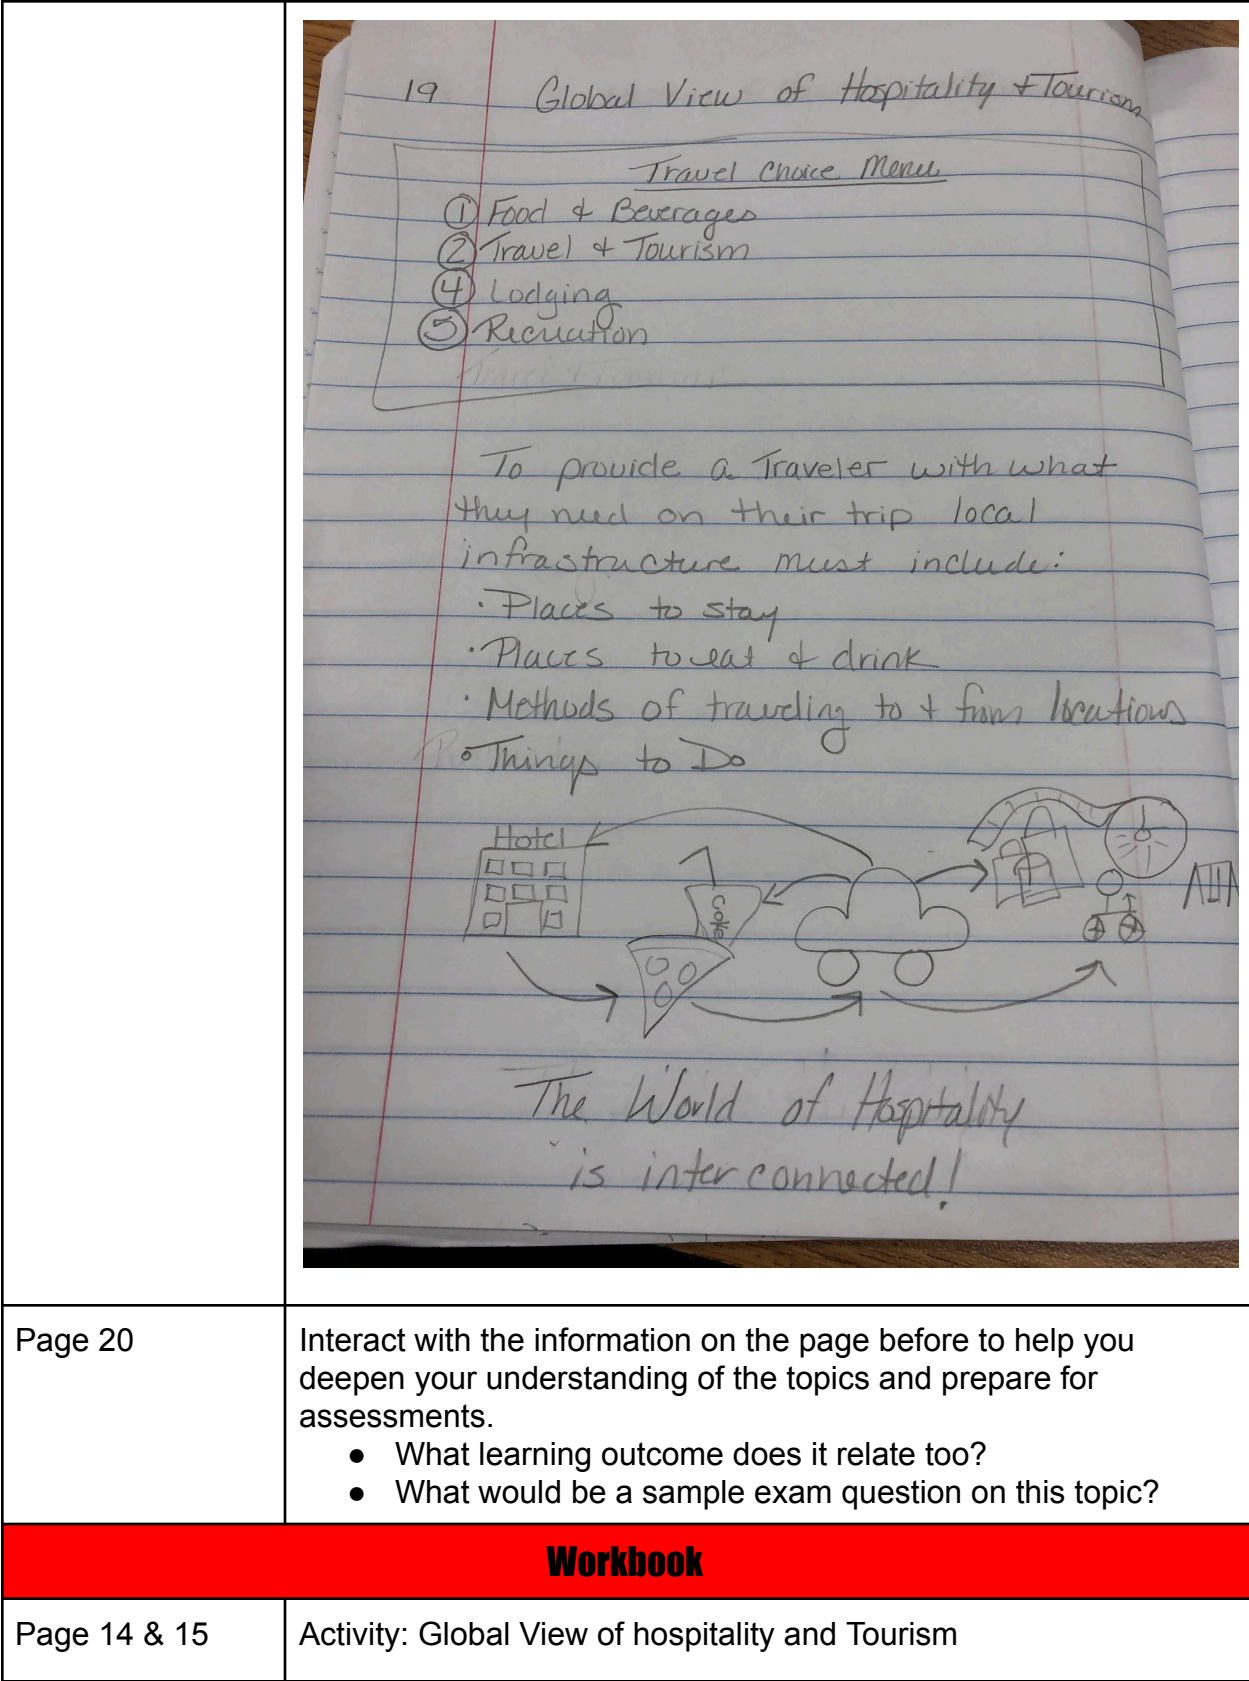 19 Global View of Hospitality & Tourism
Travel Choice Menu
① Food & Beverages
② Travel & Tourism
④ Lodging
⑤ Recreation
To provide a Traveler with what
they need on their trip local
infrastructure must include:
· Places to stay
· Places to eat & drink
· Methods of traveling to + from locations
• Things to Do
Hotel
Coke
The World of Hospitality
is interconnected!
Page 20
Interact with the information on the page before to help you
deepen your understanding of the topics and prepare for
assessments.
● What learning outcome does it relate too?
● What would be a sample exam question on this topic?
Workbook
Page 14 & 15 Activity: Global View of hospitality and Tourism